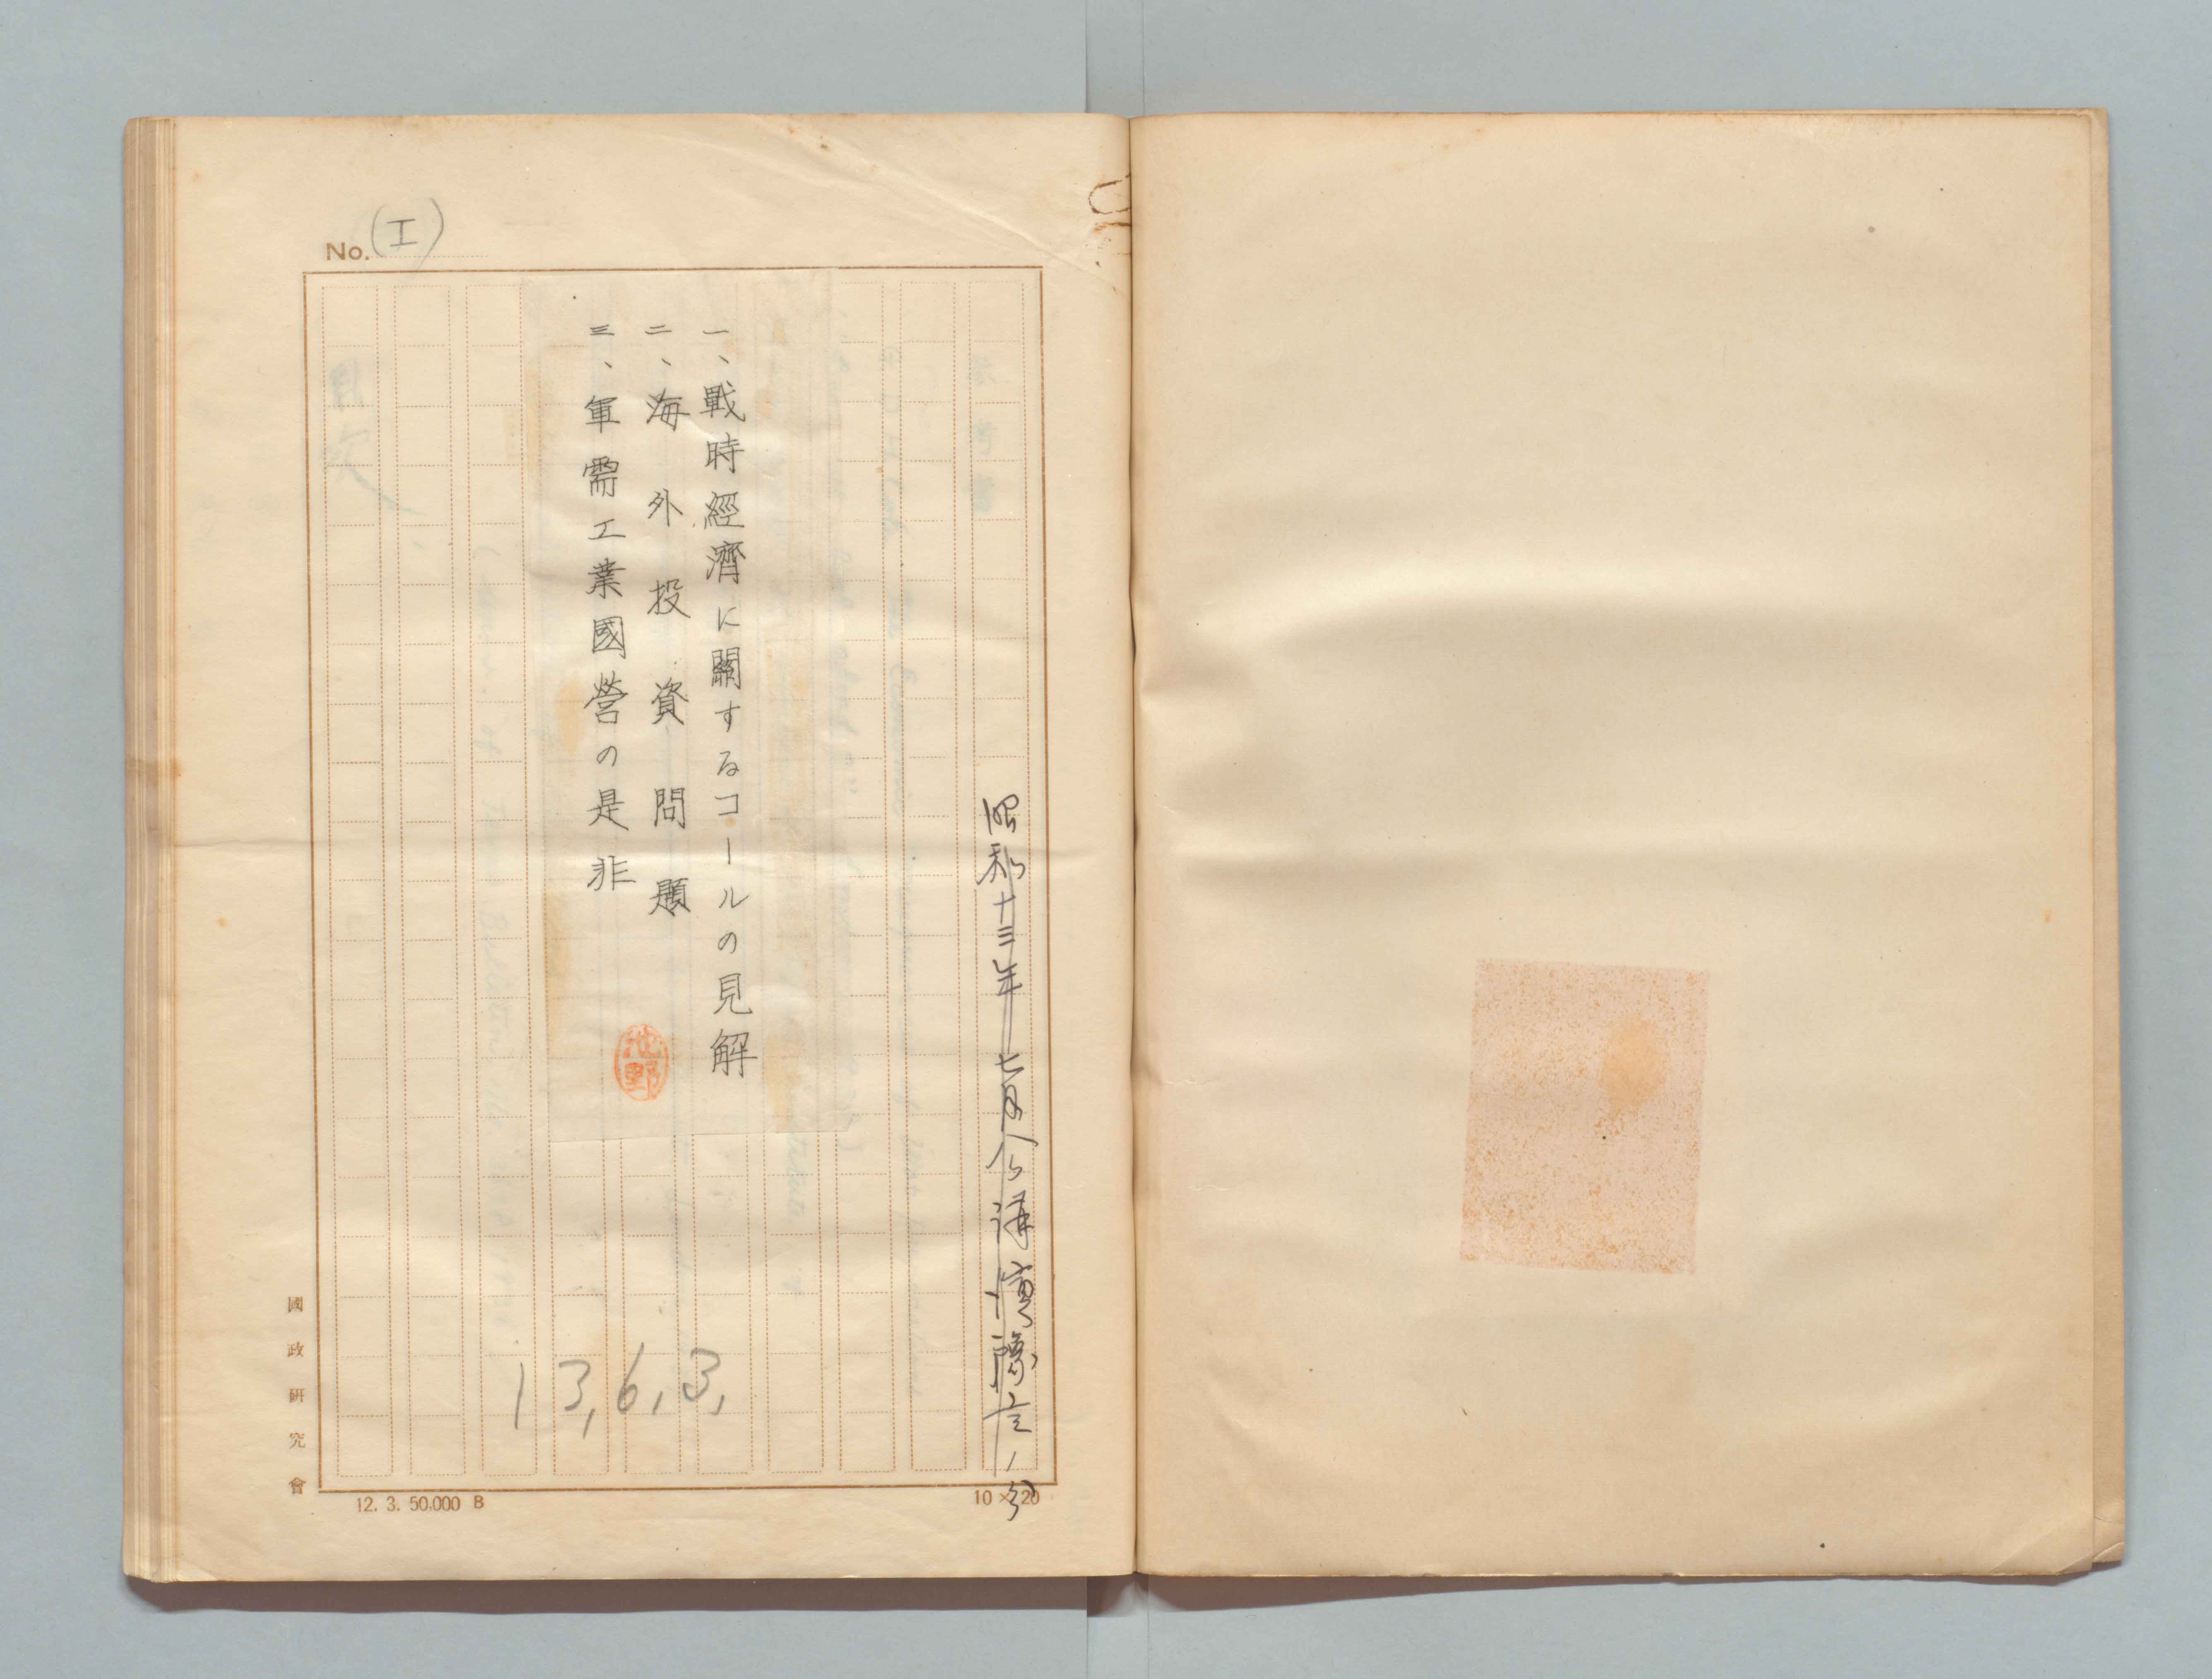 No. (I)
昭和十三年七月公講演豫定ノ分
一、戰時經濟に關するコールの見解
二、海外投資問題
三、軍需工業國營の是非
池野
13,6,3,
國政硏究會
12. 3. 50.000 B
10×20